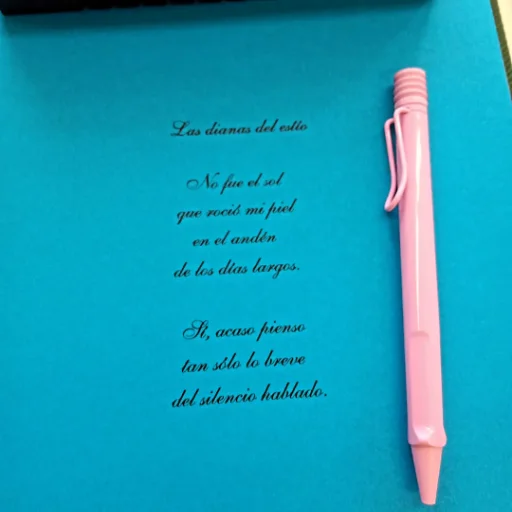 Las dianas del estío
No fue el sol
que roció mi piel
en el andén
de los días largos.
Sí, acaso pienso
tan sólo lo breve
del silencio hablado.